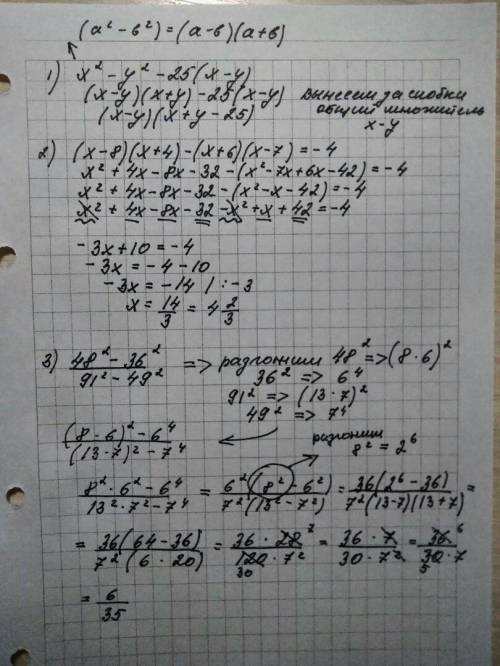 (a² - в²) = (a-в)(a+в)
1) x² - y² - 25(x-y)
(x-y)(x+y) - 25(x-y)
(x-y)(x+y-25)
вынесем за скобки
общий множитель
x-y
2) (x-8)(x+4) - (x+6)(x-7) = -4
x² + 4x - 8x - 32 - (x² - 7x + 6x - 42) = -4
x² + 4x - 8x - 32 - (x² - x - 42) = -4
x² + 4x - 8x - 32 - x² + x + 42 = -4
-3x + 10 = -4
-3x = -4 - 10
-3x = -14 | : -3
x = 14/3 = 4 2/3
3) (48² - 36²)/(91² - 49²) => разложим 48² => (8·6)²
36² => 6⁴
91² => (13·7)²
49² => 7⁴
((8·6)² - 6⁴)/((13·7)² - 7⁴)
разложим
8² = 2⁶
(8²·6² - 6⁴)/(13²·7² - 7⁴) = 6²(8² - 6²)/7²(13² - 7²) = 36(2⁶ - 36)/7²(13-7)(13+7) =
= 36(64 - 36)/7²(6·20) = 36·28 7/120·7² 30 = 36·7/30·7² = 36 6/30·7 5
= 6/35